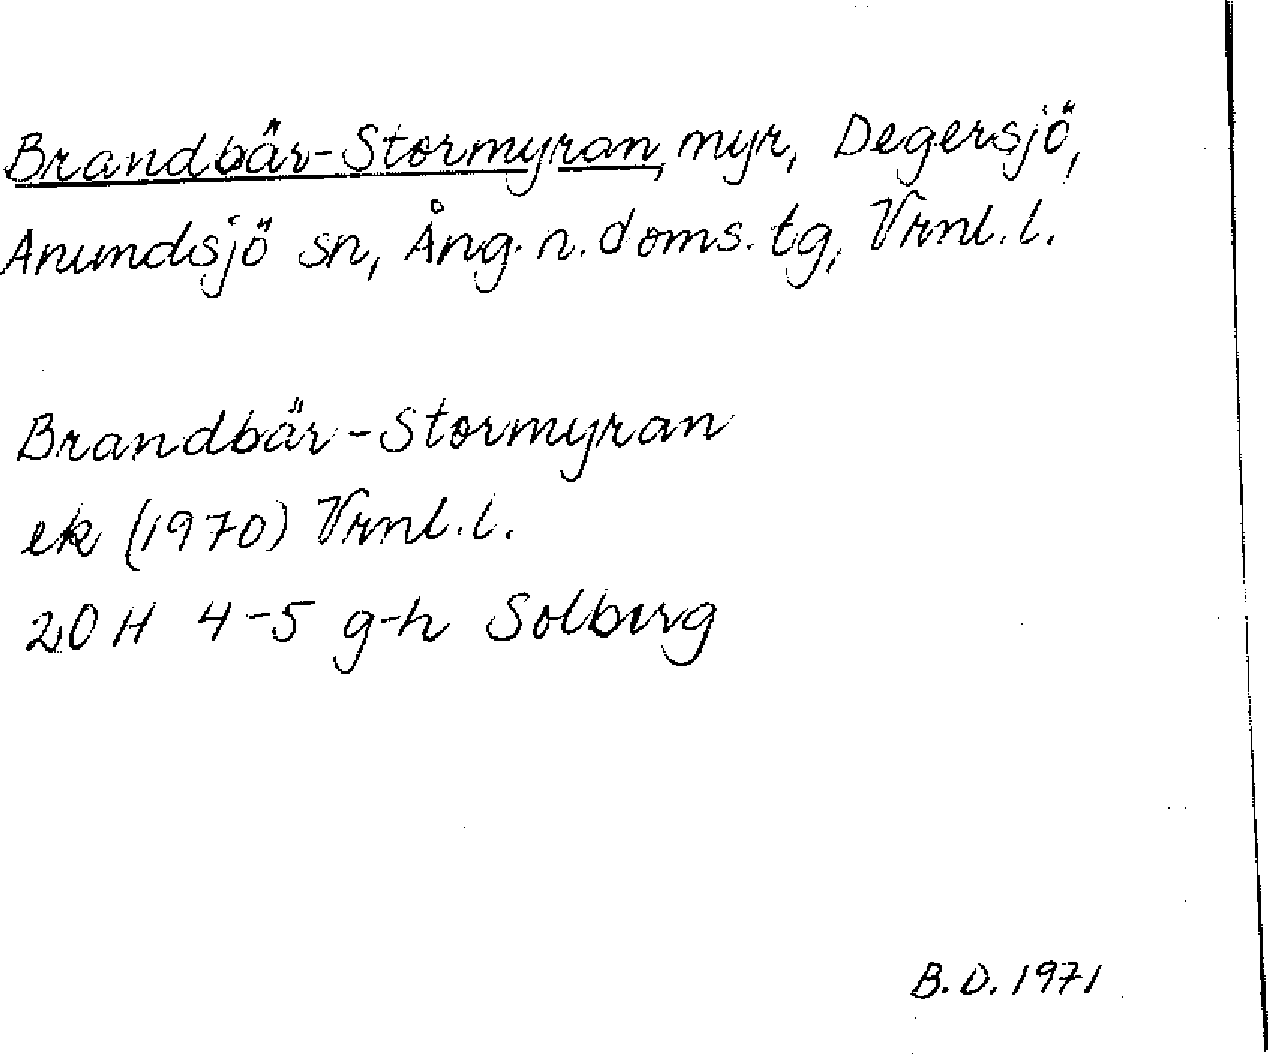 Brandbär-Stormyran, myr, Degersjö,
Anundsjö sn, Ång. n. doms. tg, Vrnl. l.
Brandbär-Stormyran
ek (1970) Vrnl. l.
20 H 4-5 g-h Solberg
B. D. 1971